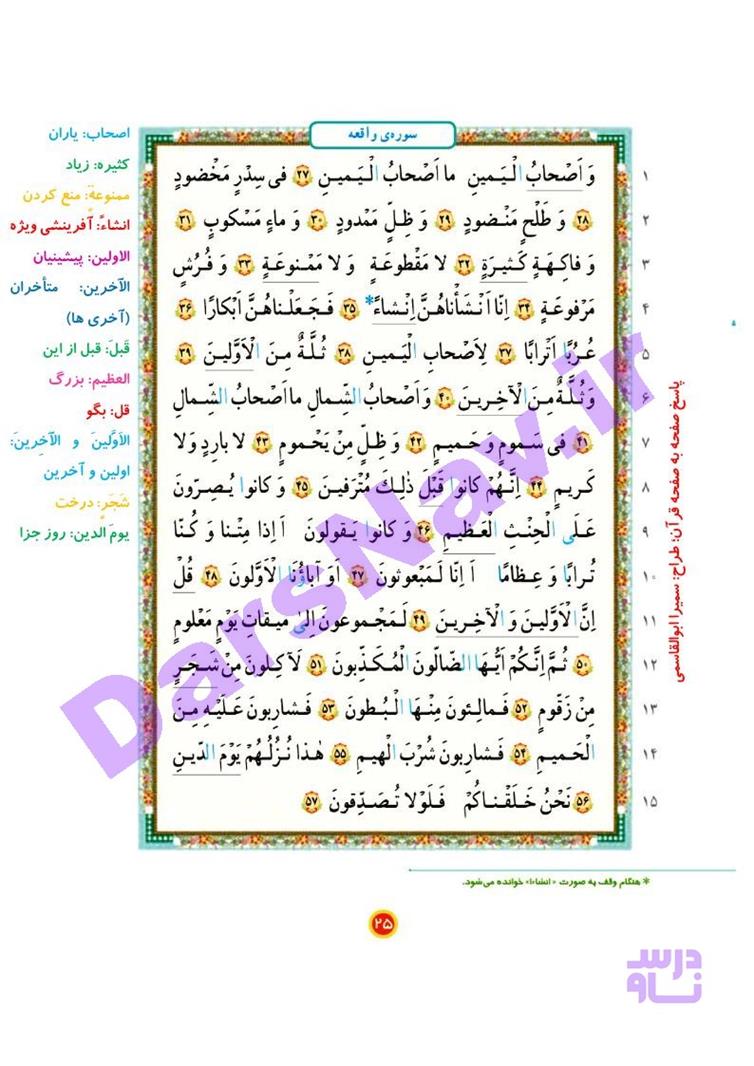 سوره‌ی واقعه
۱ وَ اَصْحابُ الْيَمينِ ما اَصْحابُ الْيَمينِ ۲۷ فى سِدْرٍ مَخْضودٍ
۲ ۲۸ وَ طَلْحٍ مَنْضودٍ ۲۹ وَ ظِلٍّ مَمْدودٍ ۳۰ وَ ماءٍ مَسْكوبٍ ۳۱
۳ وَ فاكِهَةٍ كَثيرَةٍ ۳۲ لا مَقْطوعَةٍ وَ لا مَمْنوعَةٍ ۳۳ وَ فُرُشٍ
۴ مَرْفوعَةٍ ۳۴ اِنّا اَنْشَأْناهُنَّ اِنْشاءً* ۳۵ فَجَعَلْناهُنَّ اَبْكارًا ۳۶
۵ عُرُبًا اَتْرابًا ۳۷ لِاَصْحابِ الْيَمينِ ۳۸ ثُلَّةٌ مِنَ الْاَوَّلينَ ۳۹
۶ وَ ثُلَّةٌ مِنَ الْآخِرينَ ۴۰ وَ اَصْحابُ الشِّمالِ ما اَصْحابُ الشِّمالِ
۷ ۴۱ فى سَمومٍ وَ حَميمٍ ۴۲ وَ ظِلٍّ مِنْ يَحْمومٍ ۴۳ لا بارِدٍ وَ لا
۸ كَريمٍ ۴۴ اِنَّهُمْ كانوا قَبْلَ ذٰلِكَ مُتْرَفينَ ۴۵ وَ كانوا يُصِرّونَ
۹ عَلَى الْحِنْثِ الْعَظيمِ ۴۶ وَ كانوا يَقولونَ اَاِذا مِتْنا وَ كُنّا
۱۰ تُرابًا وَ عِظامًا اَاِنّا لَمَبْعوثونَ ۴۷ اَوَ آباؤُنَا الْاَوَّلونَ ۴۸ قُلْ
۱۱ اِنَّ الْاَوَّلينَ وَ الْآخِرينَ ۴۹ لَمَجْموعونَ اِلىٰ ميقاتِ يَوْمٍ مَعْلومٍ
۱۲ ۵۰ ثُمَّ اِنَّكُمْ اَيُّهَا الضّالّونَ الْمُكَذِّبونَ ۵۱ لَآكِلونَ مِنْ شَجَرٍ
۱۳ مِنْ زَقّومٍ ۵۲ فَمالِئونَ مِنْهَا الْبُطونَ ۵۳ فَشارِبونَ عَلَيْهِ مِنَ
۱۴ الْحَميمِ ۵۴ فَشارِبونَ شُرْبَ الْهيمِ ۵۵ هٰذا نُزُلُهُمْ يَوْمَ الدّينِ
۱۵ ۵۶ نَحْنُ خَلَقْناكُمْ فَلَوْلا تُصَدِّقونَ ۵۷
* هنگام وقف به صورت «انشاءا» خوانده می‌شود.
۲۵
اصحاب: یاران
کثیره: زیاد
ممنوعةٍ: منع کردن
انشاءً: آفرینشی ویژه
الاولین: پیشینیان
الآخرین: متأخران
(آخری ها)
قَبلَ: قبل از این
العظیم: بزرگ
قل: بگو
الاَوَّلینَ و الآخِرینَ:
اولین و آخرین
شَجَرٍ: درخت
یومَ الدین: روز جزا
پاسخ صفحه به صفحه قرآن: طراح: سمیرا ابوالقاسمی
DarsNav.ir
درس
ناو